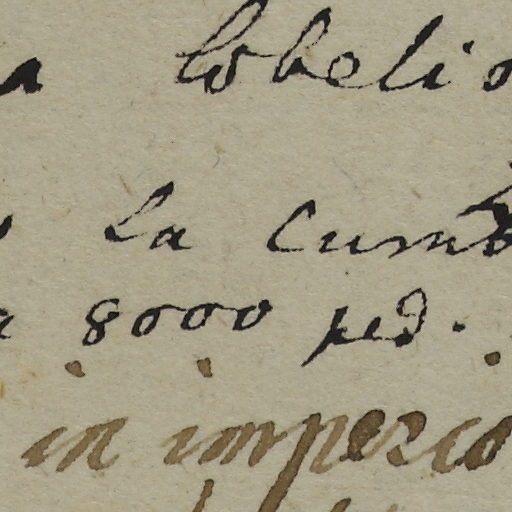 a lobelio
La Cumb
a 8000 ped.
in imperio